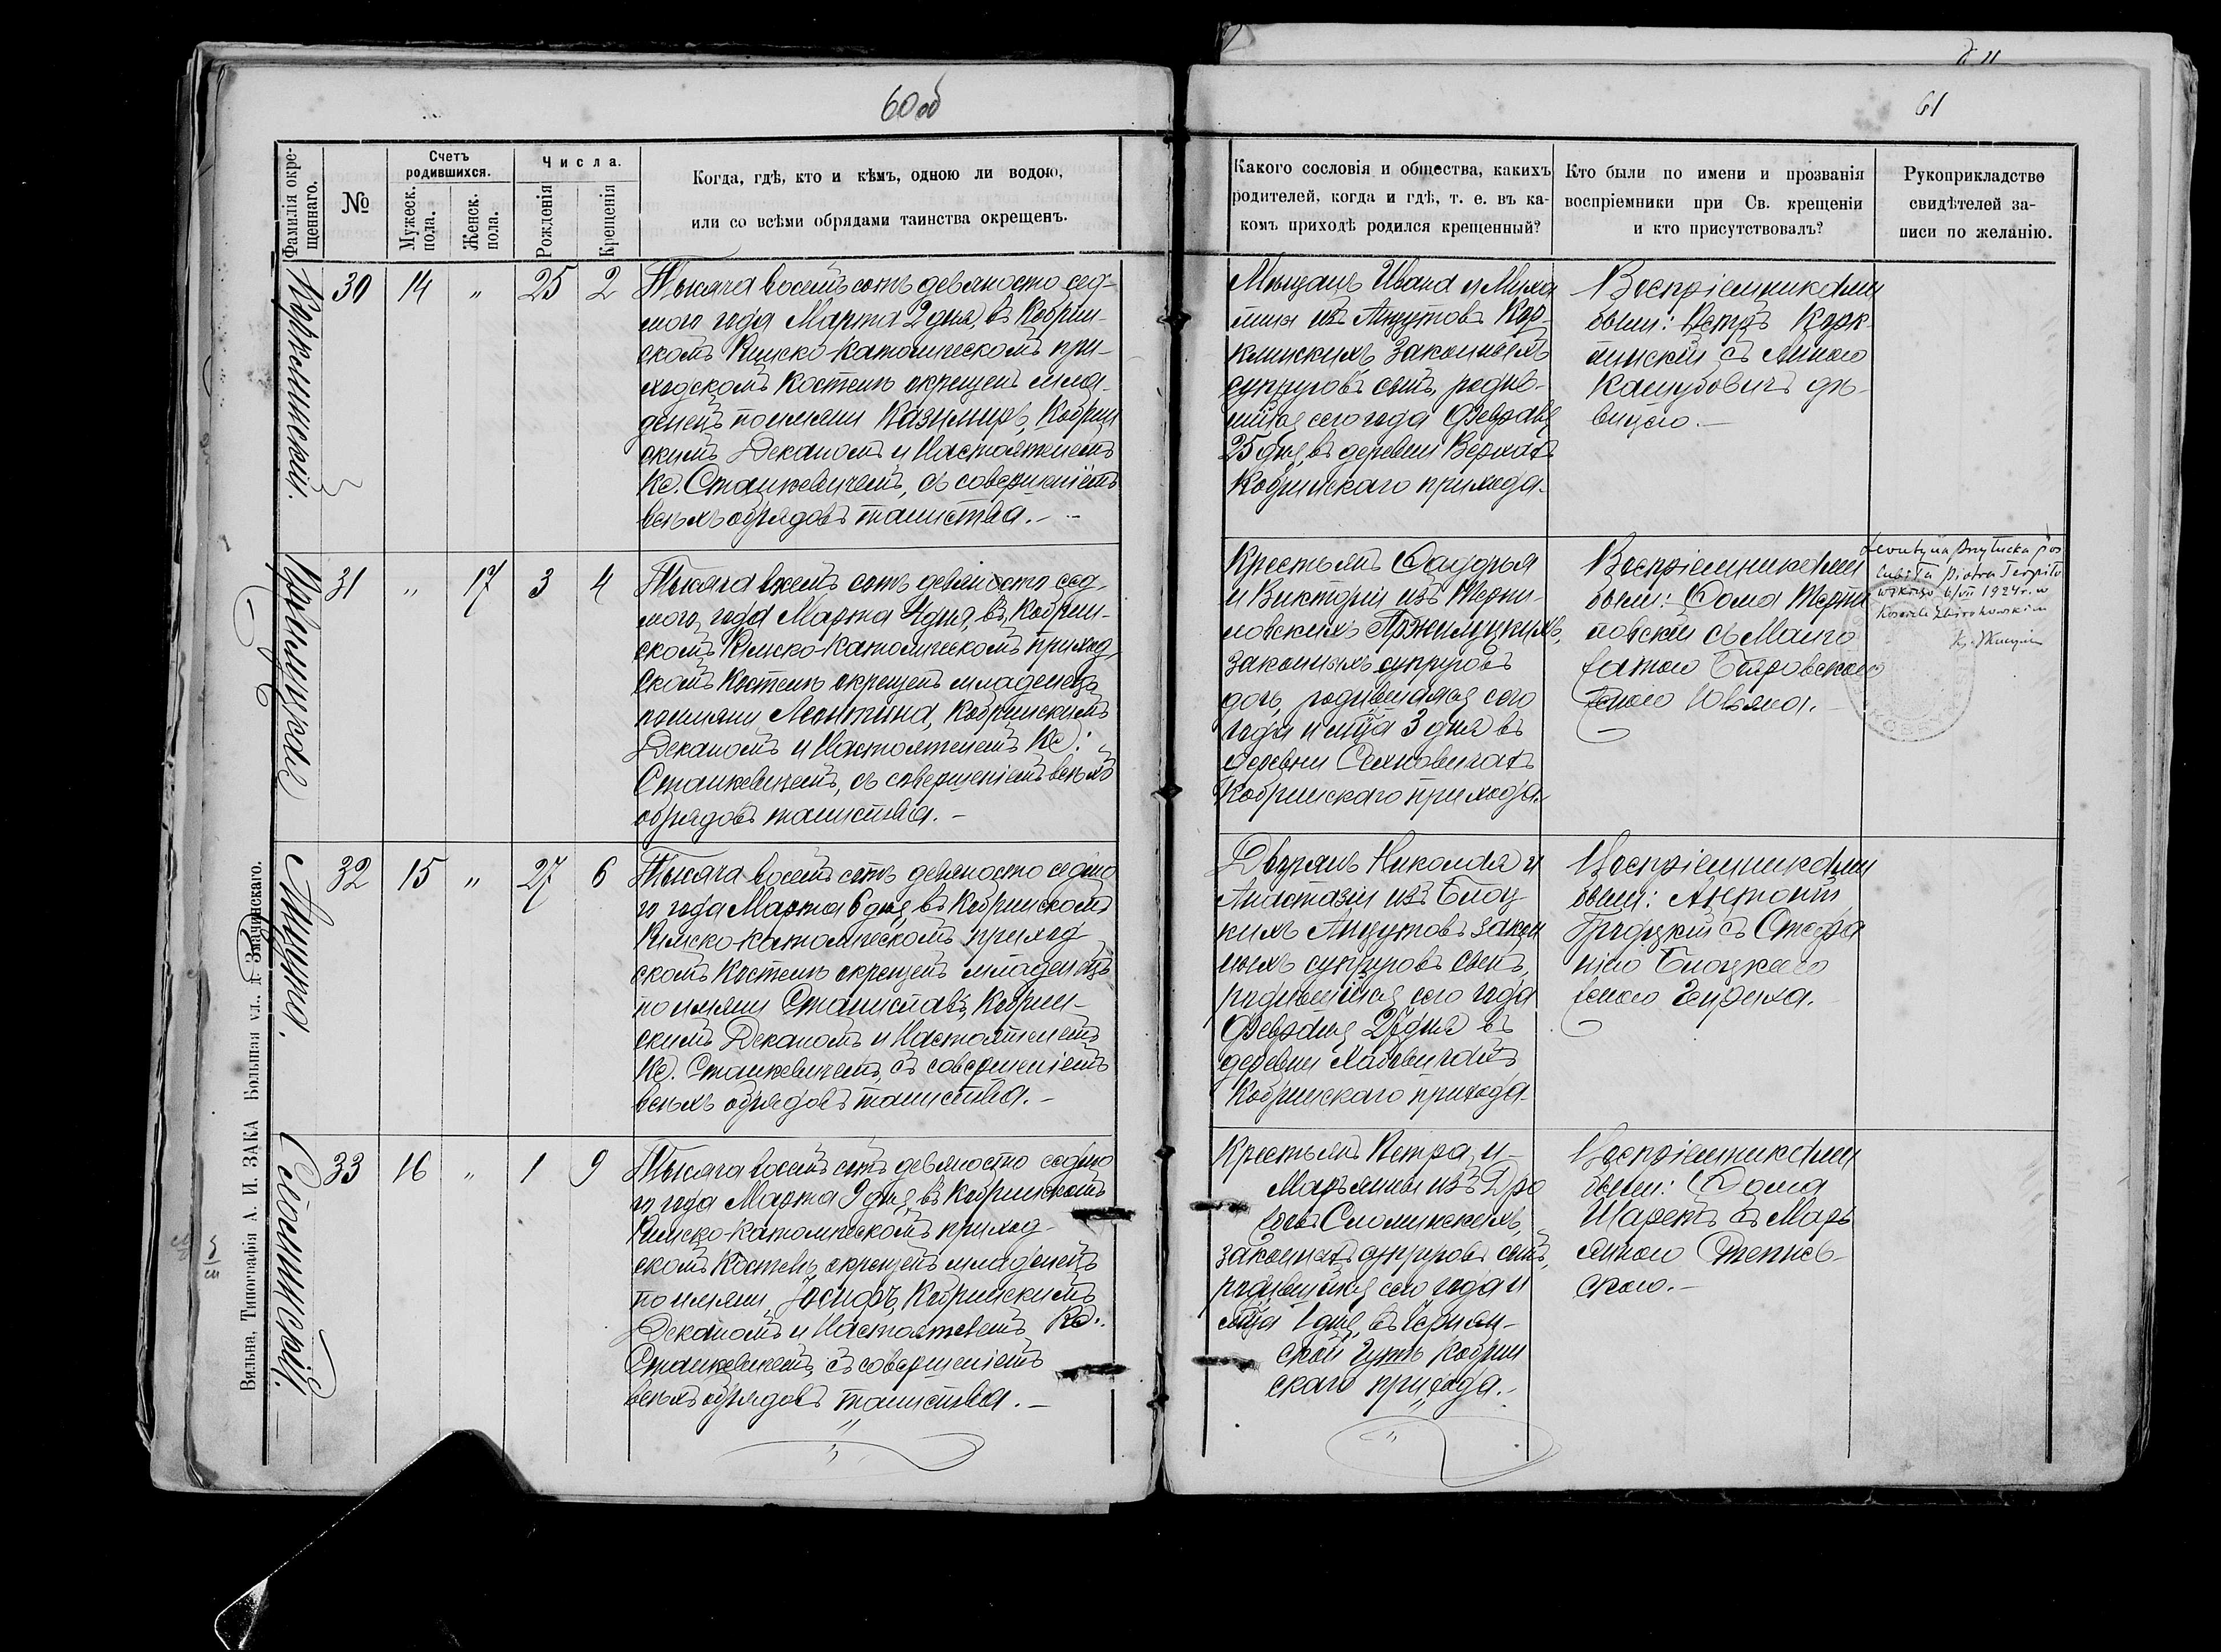 60 об
61
Фамилія окре-
щеннаго.
№
Счетъ
родившихся.
Мужеск.
пола.
Женск.
пола.
Числа.
Рожденія
Крещенія
Когда, гдѣ, кто и кѣмъ, одною ли водою,
или со всѣми обрядами таинства окрещенъ.
Какого сословія и общества, какихъ
родителей, когда и гдѣ, т. е. въ ка-
комъ приходѣ родился крещенный?
Кто были по имени и прозванія
воспріемники при Св. крещеніи
и кто присутствовалъ?
Рукоприкладство
свидѣтелей за-
писи по желанію.
30 14 „ 25 2
Тысяча восемь сотъ девяносто сед-
мого года Марта 2 дня, въ Кобрин-
скомъ Римско-Католическомъ при-
ходскомъ Костелѣ окрещенъ мла-
денецъ по имяни Казимиръ, Кобрин
скимъ Деканомъ и Настоятелемъ
Кс. Станкевичемъ, съ совершеніемъ
всѣхъ обрядовъ таинства.-
Мѣщанъ Ивана и Миха
лины изъ Анцутовъ Кор
клинскихъ законныхъ
супруговъ сынъ, родив-
шійся сего года Февраля
25 дня, въ деревни
Кобринскаго прихода.
Воспріемниками
были: Петръ Корк-
линскій съ Анною
дѣ-
вицею.-
31 „ 17 3 4
Тысяча восемь сотъ девяносто сед-
мого года Марта 4 дня, въ Кобрин-
скомъ Римско-Католическомъ приход
скомъ Костелѣ окрещенъ младенецъ
по имяни Леонтина, Кобринскимъ
Деканомъ и Настоятелемъ Кс:
Станкевичемъ, съ совершеніемъ всѣхъ
обрядовъ таинства.-
Крестьянъ
и Викторіи изъ Терпи-
ловскихъ Пржилуцкихъ,
законныхъ супруговъ
дочь, родившаяся сего
года и мца 3 дня въ
деревни Сехновичахъ
Кобринскаго прихода.
Воспріемниками
были: Фома Терпи
ловскій съ
женою Юльяна.
Leontyna Przyłucka poś
lubiła Piotra Terpiło
wskiego 6/VII 1924 r. w
Kościele
Анцута.
32 15 „ 27 6
Тысяча восемь сотъ девяносто седмо
го года Марта 6 дня, въ Кобринскомъ
Римско-католическомъ приход
скомъ Костелѣ окрещенъ младенецъ
по имяни Станиславъ, Кобрин-
скимъ Деканомъ и Настоятелемъ
Кс. Станкевичемъ, съ совершеніемъ
всѣхъ обрядовъ таинства.-
Дворянъ Николая и
Анастазіи изъ Блоц
кихъ Анцутовъ закон
ныхъ супруговъ сынъ,
родившійся сего года
Февраля 27 дня въ
деревни
Кобринскаго прихода
Воспріемниками
были: Антонъ
съ Стефа
ніею Блоцкаго
женою Генриха.
33 16 „ 1 9
Тысяча восемь сотъ девяносто седмо
го года Марта 9 дня, въ Кобринскомъ
Римско-католическомъ приход-
скомъ Костелѣ окрещенъ младенецъ
по имяни Іосифъ, Кобринскимъ
Деканомъ и Настоятелемъ Кс.
Станкевичемъ, съ совершеніемъ
всѣхъ обрядовъ таинства.-
Крестьянъ Петра и
Марьянны изъ
законныхъ супруговъ сынъ,
родившійся сего года и
мца 1 дня, въ
Гутѣ Кобрин
скаго прихода.
Воспріемниками
были: Фома
съ Марь
янною
Вильна, Типографія А. И. ЗАКА Большая ул., д. Значинскаго.